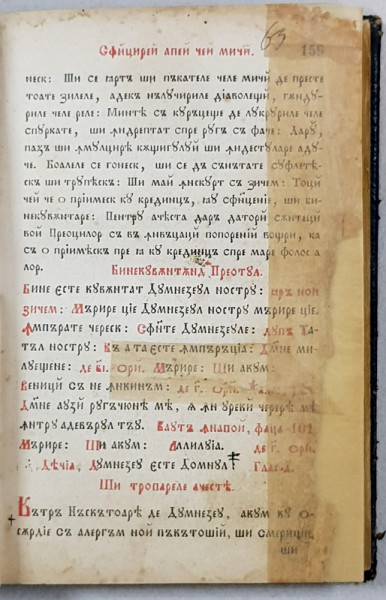 Сфи҃цирей апей чей мичй. 159
63
неск: Ши се ꙗртъ ши пъкателе челе мичй де престе
тоате зилеле, адекъ нълучириле діаволещй, гѫнду-
риле челе реле: Минтѣ съ куръцеще де лукруриле челе
спуркате, ши ѫндрептат спре ругъ съ фаче: Дару,
паза ши ѫмулцирѣ кѫщигулуй ши ѫндестуларе аду-
че. Боалеле се гонеск, ши се дъ сънътате суфлетѣ-
скъ ши трупѣскъ: Ши май ѫнскурт съ зичем: Тоцй
чей че о прїимеск ку крединцъ, ши ку сфйценїе, ши би-
некувѫнтаре: Пентру ачѣста дар даторй сѫнтецй
вой Преоцилор съ въ ѫнвъцацй попоренїй вощри, ка
съ о прїимѣскъ ку крединцъ спре маре фолос а
лор. Бинекувѫнтѫнд Преотул.
Бине єсте кувѫнтат Думнезеул ностру: ꙗръ ной
зичем: Мърире ціе Думнезеул ностру мърире ціе.
Ѫмпърате череск: Сфи҃те Думнезеуле: дупъ Та-
тъл ностру: Къ а та єсте ѫмпъръціа: Дм҃не ми-
луещене: де в҃і. орй. Мърире: Ши акум:
Вениций съ не ѫнкинъм: де г҃. орй.
Дм҃не аузй ругъчюнѣ мѣ, ꙗ ѫн урекй черерѣ мѣ
ѫнтру адевърул тъу. Каутъ ѫнапой, фаца 101
Мърире: Ши акум: Аллилуїа. де г҃. орй.
Дѣчїа, Думнезеу єсте Домнул Глас д.
Ши тропареле ачестѣ.
Кътръ Нъскътоаре де Думнезеу, акум ку о-
сѫрдіе съ алергъм ной пъкътошій, ши смерицїи
ши